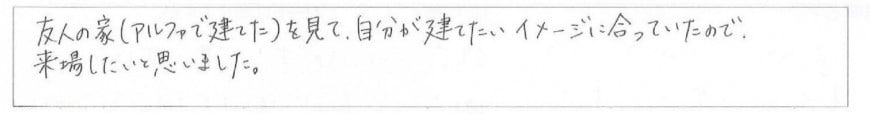 友人の家(アルファで建てた)を見て、自分が建てたいイメージに合っていたので、
来場したいと思いました。